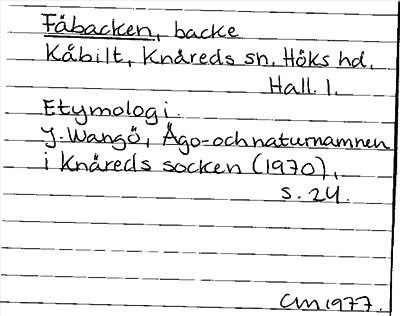 Fåbacken, backe
Kåbilt, Knäreds sn, Höks hd,
Hall. l.
Etymologi.
J. Wangö, Ägo- och naturnamnen
i Knäreds socken (1970),
s. 24.
CM 1977.